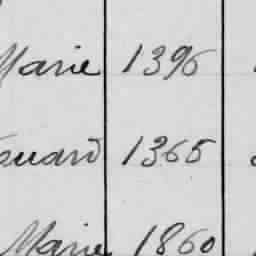 Marie 1396
ouard 1365
Marie 1860